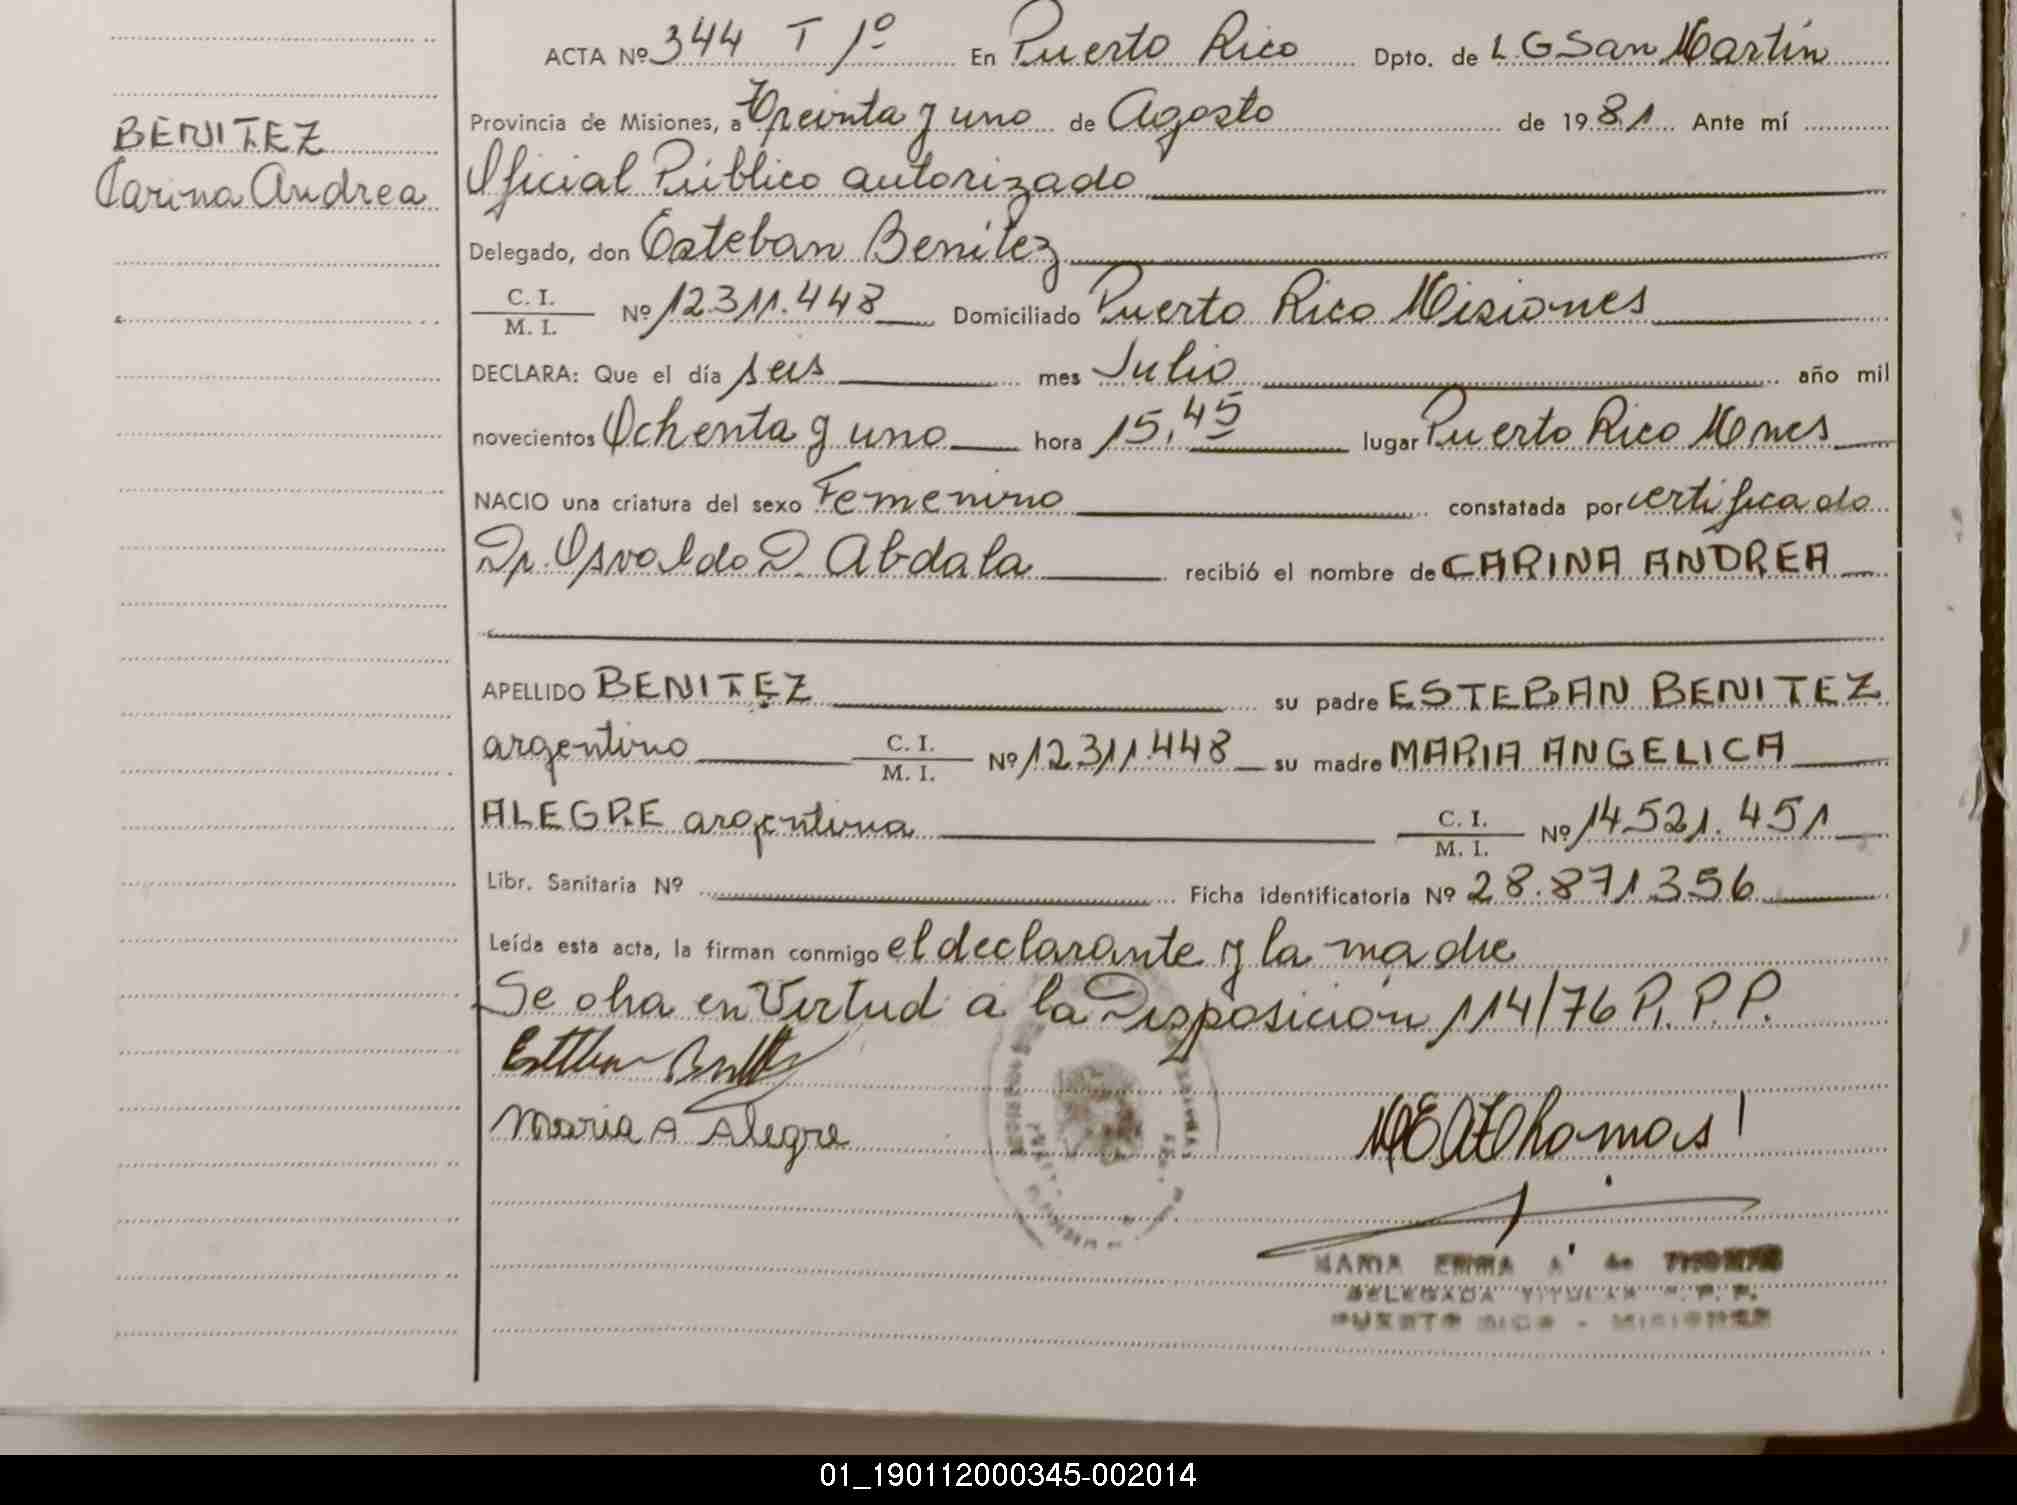 ACTA Nº 344 T 1º En Puerto Rico Dpto. de L G San Martín
Provincia de Misiones, a Treinta y uno de Agosto de 1981 Ante mí
BENITEZ
Carina Andrea
Oficial Público autorizado
Delegado, don Esteban Benitez
C. I.
M. I.
Nº 12311.448 Domiciliado Puerto Rico Misiones
DECLARA: Que el día seis mes Julio año mil
novecientos Ochenta y uno hora 15,45 lugar Puerto Rico Mnes
NACIO una criatura del sexo Femenino constatada por certificado
Dr. Osvaldo D. Abdala recibió el nombre de CARINA ANDREA
APELLIDO BENITEZ su padre ESTEBAN BENITEZ
argentino C. I.
M. I.
Nº 12311.448 su madre MARIA ANGELICA
ALEGRE argentina C. I.
M. I.
Nº 14521.451
Libr. Sanitaria Nº Ficha identificatoria Nº 28.871356
Leída esta acta, la firman conmigo el declarante y la madre
Se en Virtud a la Disposición 114/76 R. P. P.
Maria A Alegre
MARIA EMMA A de
DELEGADA TITULAR R. P. P.
PUERTO RICO - MISIONES
01_190112000345-002014